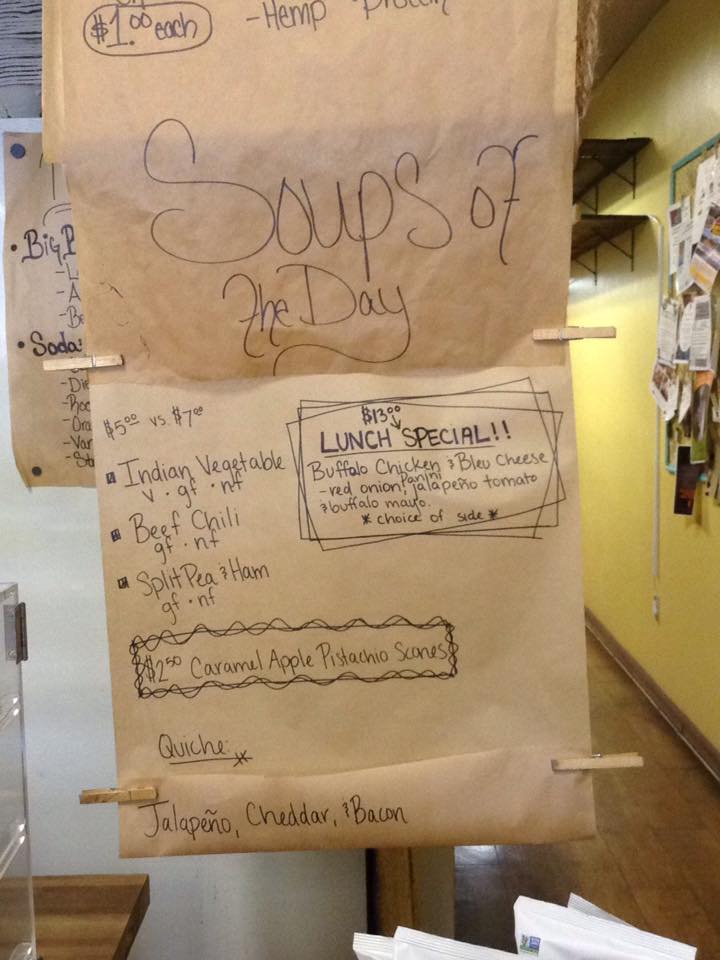 $1.00 each
-Hemp Protein
Soups of
The Day
• Big
- L
- A
- Be
• Soda
- Die
- Roo
- Ora
- Van
$5.00 vs. $7.00
Indian Vegetable
v · gf · nf
Beef Chili
gf · nf
Split Pea & Ham
gf · nf
$13.00
LUNCH SPECIAL!!
Buffalo Chicken & Bleu Cheese
Panini
-red onion, jalapeño tomato
& buffalo mayo.
* choice of side *
$2.50 Caramel Apple Pistachio Scones
Quiche:
Jalapeño, Cheddar, & Bacon